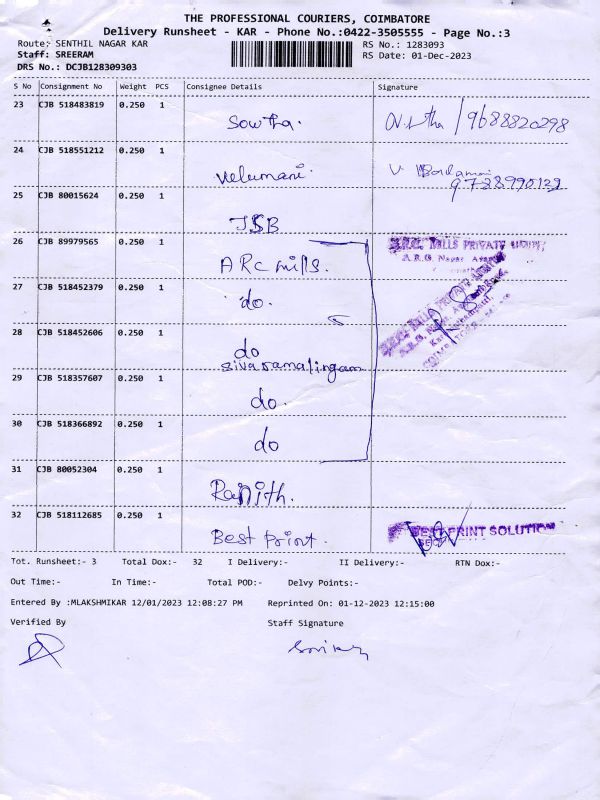 THE PROFESSIONAL COURIERS, COIMBATORE
Delivery Runsheet - KAR - Phone No.:0422-3505555 - Page No.:3
Route: SENTHIL NAGAR KAR
RS No.: 1283093
Staff: SREERAM
RS Date: 01-Dec-2023
DRS No.: DCJB128309303
S No Consignment No Weight PCS Consignee Details Signature
23 CJB 518483819 0.250 1 Sowtha. 9688820298
24 CJB 518551212 0.250 1 Velumani. V
25 CJB 80015624 0.250 1 JSB
26 CJB 89979565 0.250 1 ARC mills. MILLS PRIVATE
A.R.G. Nagar
27 CJB 518452379 0.250 1 do.
28 CJB 518452606 0.250 1 do
sivaramalingam
29 CJB 518357607 0.250 1 do.
30 CJB 518366892 0.250 1 do
31 CJB 80052304 0.250 1 Ranjith.
32 CJB 518112685 0.250 1 Best Point. BEST PRINT SOLUTION
Tot. Runsheet:- 3 Total Dox:- 32 I Delivery:- II Delivery:- RTN Dox:-
Out Time:- In Time:- Total POD:- Delvy Points:-
Entered By :MLAKSHMIKAR 12/01/2023 12:08:27 PM Reprinted On: 01-12-2023 12:15:00
Verified By Staff Signature